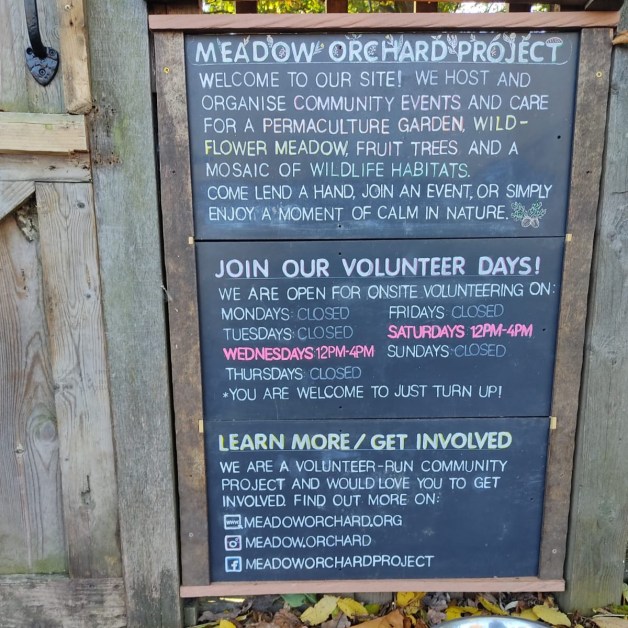 MEADOW ORCHARD PROJECT
WELCOME TO OUR SITE! WE HOST AND
ORGANISE COMMUNITY EVENTS AND CARE
FOR A PERMACULTURE GARDEN, WILD-
FLOWER MEADOW, FRUIT TREES AND A
MOSAIC OF WILDLIFE HABITATS.
COME LEND A HAND, JOIN AN EVENT, OR SIMPLY
ENJOY A MOMENT OF CALM IN NATURE.
JOIN OUR VOLUNTEER DAYS!
WE ARE OPEN FOR ONSITE VOLUNTEERING ON:
MONDAYS: CLOSED
TUESDAYS: CLOSED
WEDNESDAYS: 12PM-4PM
THURSDAYS: CLOSED
FRIDAYS: CLOSED
SATURDAYS 12PM-4PM
SUNDAYS: CLOSED
*YOU ARE WELCOME TO JUST TURN UP!
LEARN MORE / GET INVOLVED
WE ARE A VOLUNTEER-RUN COMMUNITY
PROJECT AND WOULD LOVE YOU TO GET
INVOLVED. FIND OUT MORE ON:
www MEADOWORCHARD.ORG
MEADOW.ORCHARD
f MEADOWORCHARDPROJECT